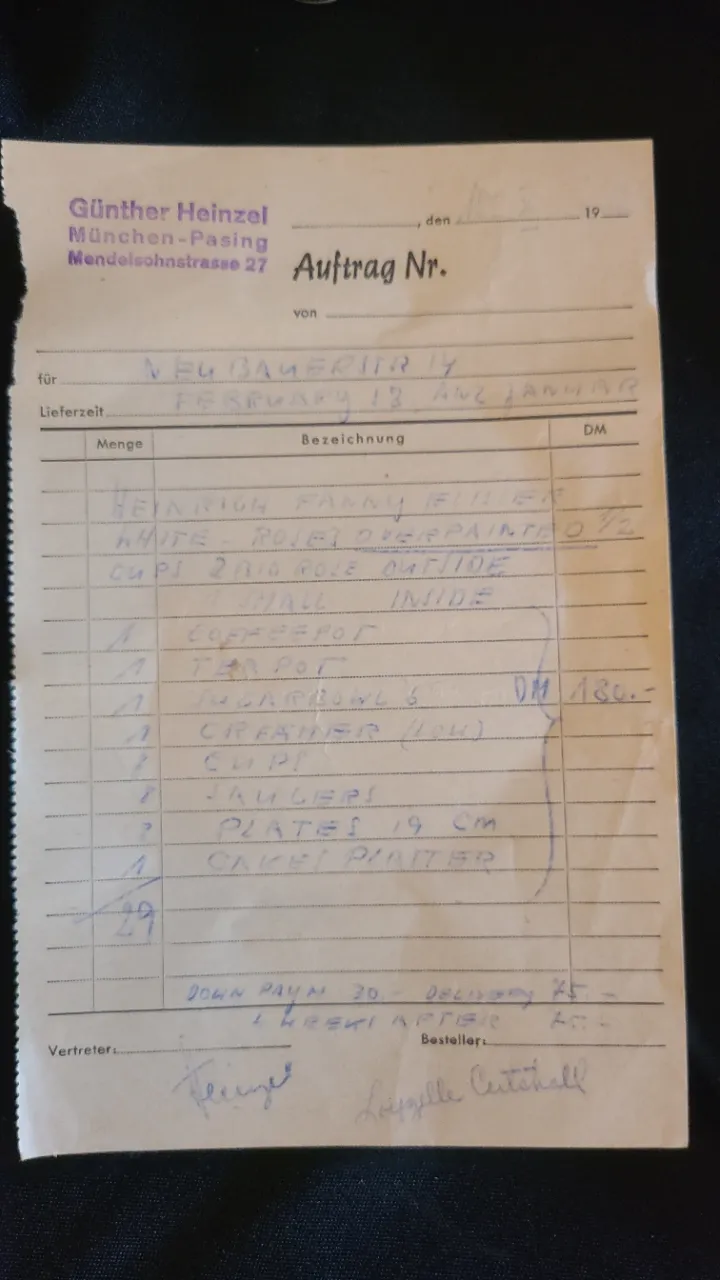 Günther Heinzel
München-Pasing
Mendelsohnstrasse 27
, den 19
Auftrag Nr.
von
für NEUBAUERSTR 14
Lieferzeit FEBRUARY 13 JANUAR
Menge Bezeichnung DM
HEINRICH FANNY
WHITE - ROSES OVERPAINTED
CUPS 2 BIG ROSE OUTSIDE
1 SMALL INSIDE
1 COFFEEPOT
1 TEAPOT
1 SUGARBOWL 6 DM 180.-
1 CREAMER (LOW)
8 CUPS
8 SAUCERS
8 PLATES 19 CM
1 CAKES PLATTER
29
DOWN PAYM 30.- DELIVERY 75.-
4 WEEKS AFTER 75.-
Vertreter: Besteller:
Heinzel